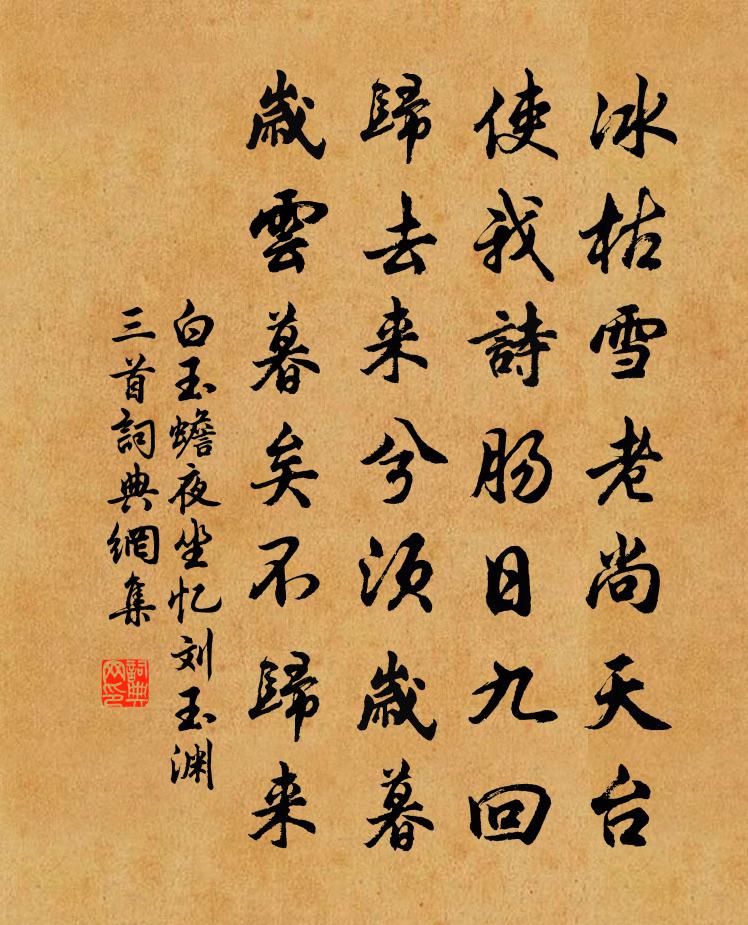 冰枯雪老尚天台
使我詩肠日九回
歸去来兮須歳暮
歳雲暮矣不歸来
白玉蟾夜坐忆刘玉渊
三首詞典網集
詞典网印